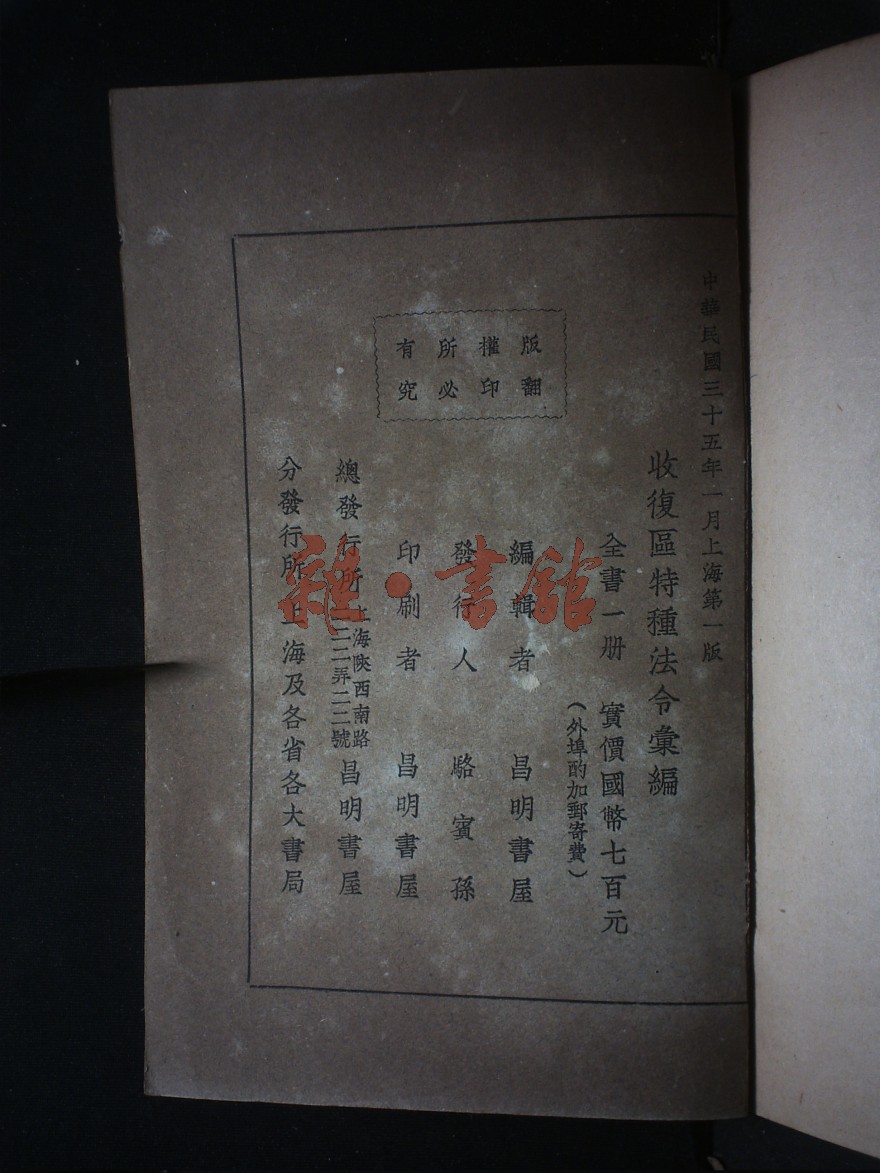 中華民國三十五年一月上海第一版
收復區特種法令彙編
全書一册 實價國幣七百元
（外埠酌加郵寄費）
版權所有
翻印必究
編輯者 昌明書屋
發行人 駱賓孫
印刷者 昌明書屋
總發行所 上海陝西南路
二二弄二二號 昌明書屋
分發行所 上海及各省各大書局
雜·書館